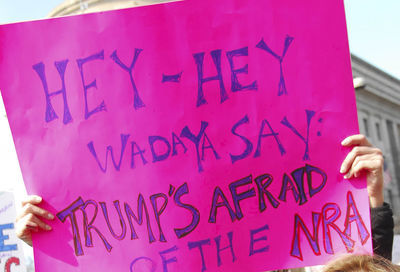 HEY-HEY
WADAYA SAY:
TRUMP'S AFRAID
OF THE NRA